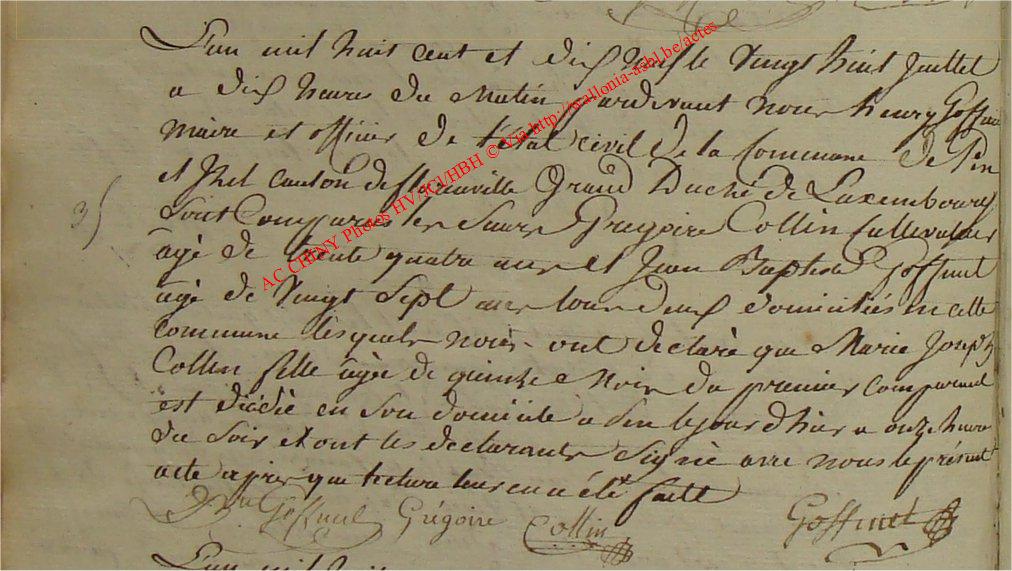 L'an mil huit cent et dix neuf le Vingt huit Juillet
a dix heures du Matin pardevant nous henry Goffinet
maire et officier de l'état civil de la Commune de Pin
et Izel canton de florenville Grand Duché de Luxembourg
35
sont Comparus les Sieurs Gregoire Collin Cultivateur
âgé de trente quatre ans et Jean Baptiste Goffinet
âgé de Vingt Sept ans tous deux domiciliés en cette
commune lesquels nous ont declaré que Marie Joseph
Collin fille âgée de quinze Mois du premier comparant
est dècèdé en son domicile a Pin lejour d'hier a onze heure
du Soir et ont les declarants Signé avec nous leprésent
acte apres que lecture leur en a été faitte
Goffinet Grégoire Collin Goffinet
L'an mil
AC CHINY Photos HV/JCI/HBH © Via http://wallonia-asbl.be/actes